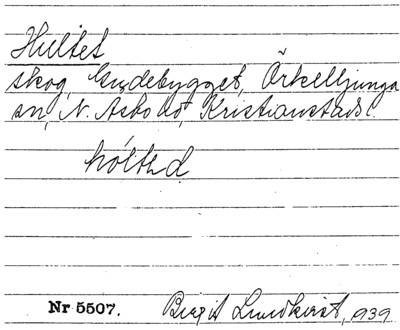 Hultet
skog, Gudebygget, Örkelljunga
sn, N. Åsbo hd, Kristianstads l.
hòltəd
Nr 5507. Birgit Lundkvist, 1939